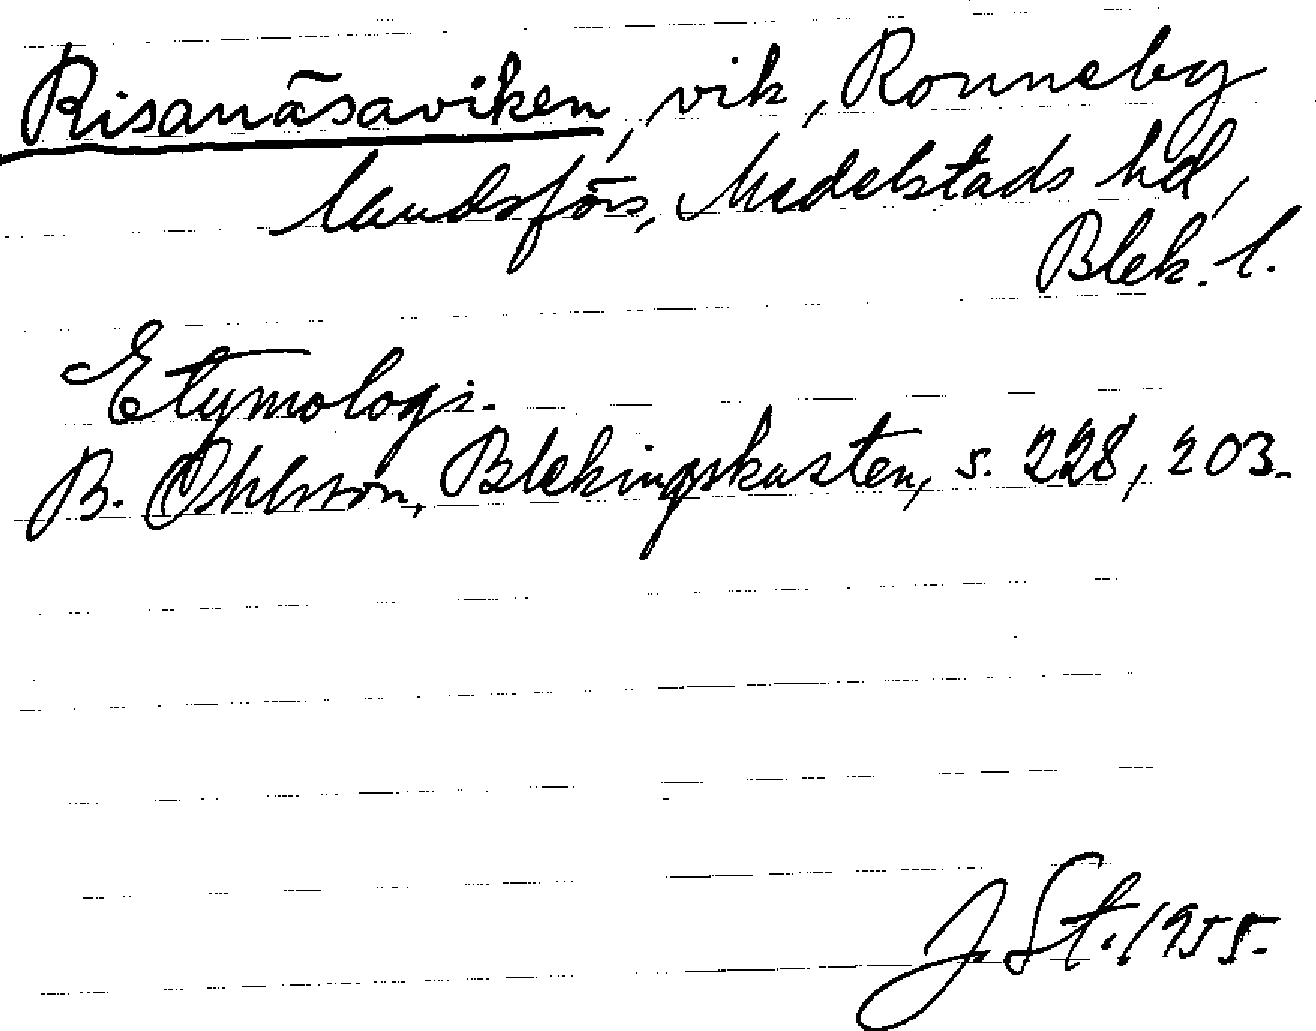 Risanäsaviken, vik, Ronneby
landsförs, Medelstads hd,
Blek. l.
Etymologi.
B. Ohlsson, Blekingskusten, s. 228, 203.
J. St. 1955.